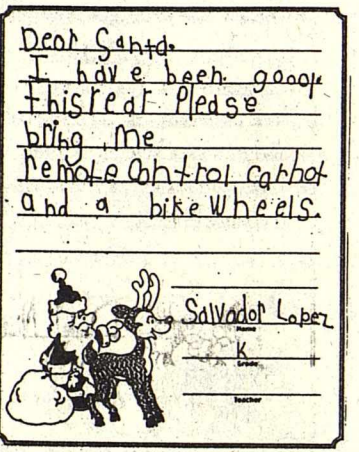 Dear Santa.
I have been gooop.
thisrear Please
bring me
remote Control carhot
and a bike Wheels.
Salvador Lopez
Name
K
Grade
Teacher